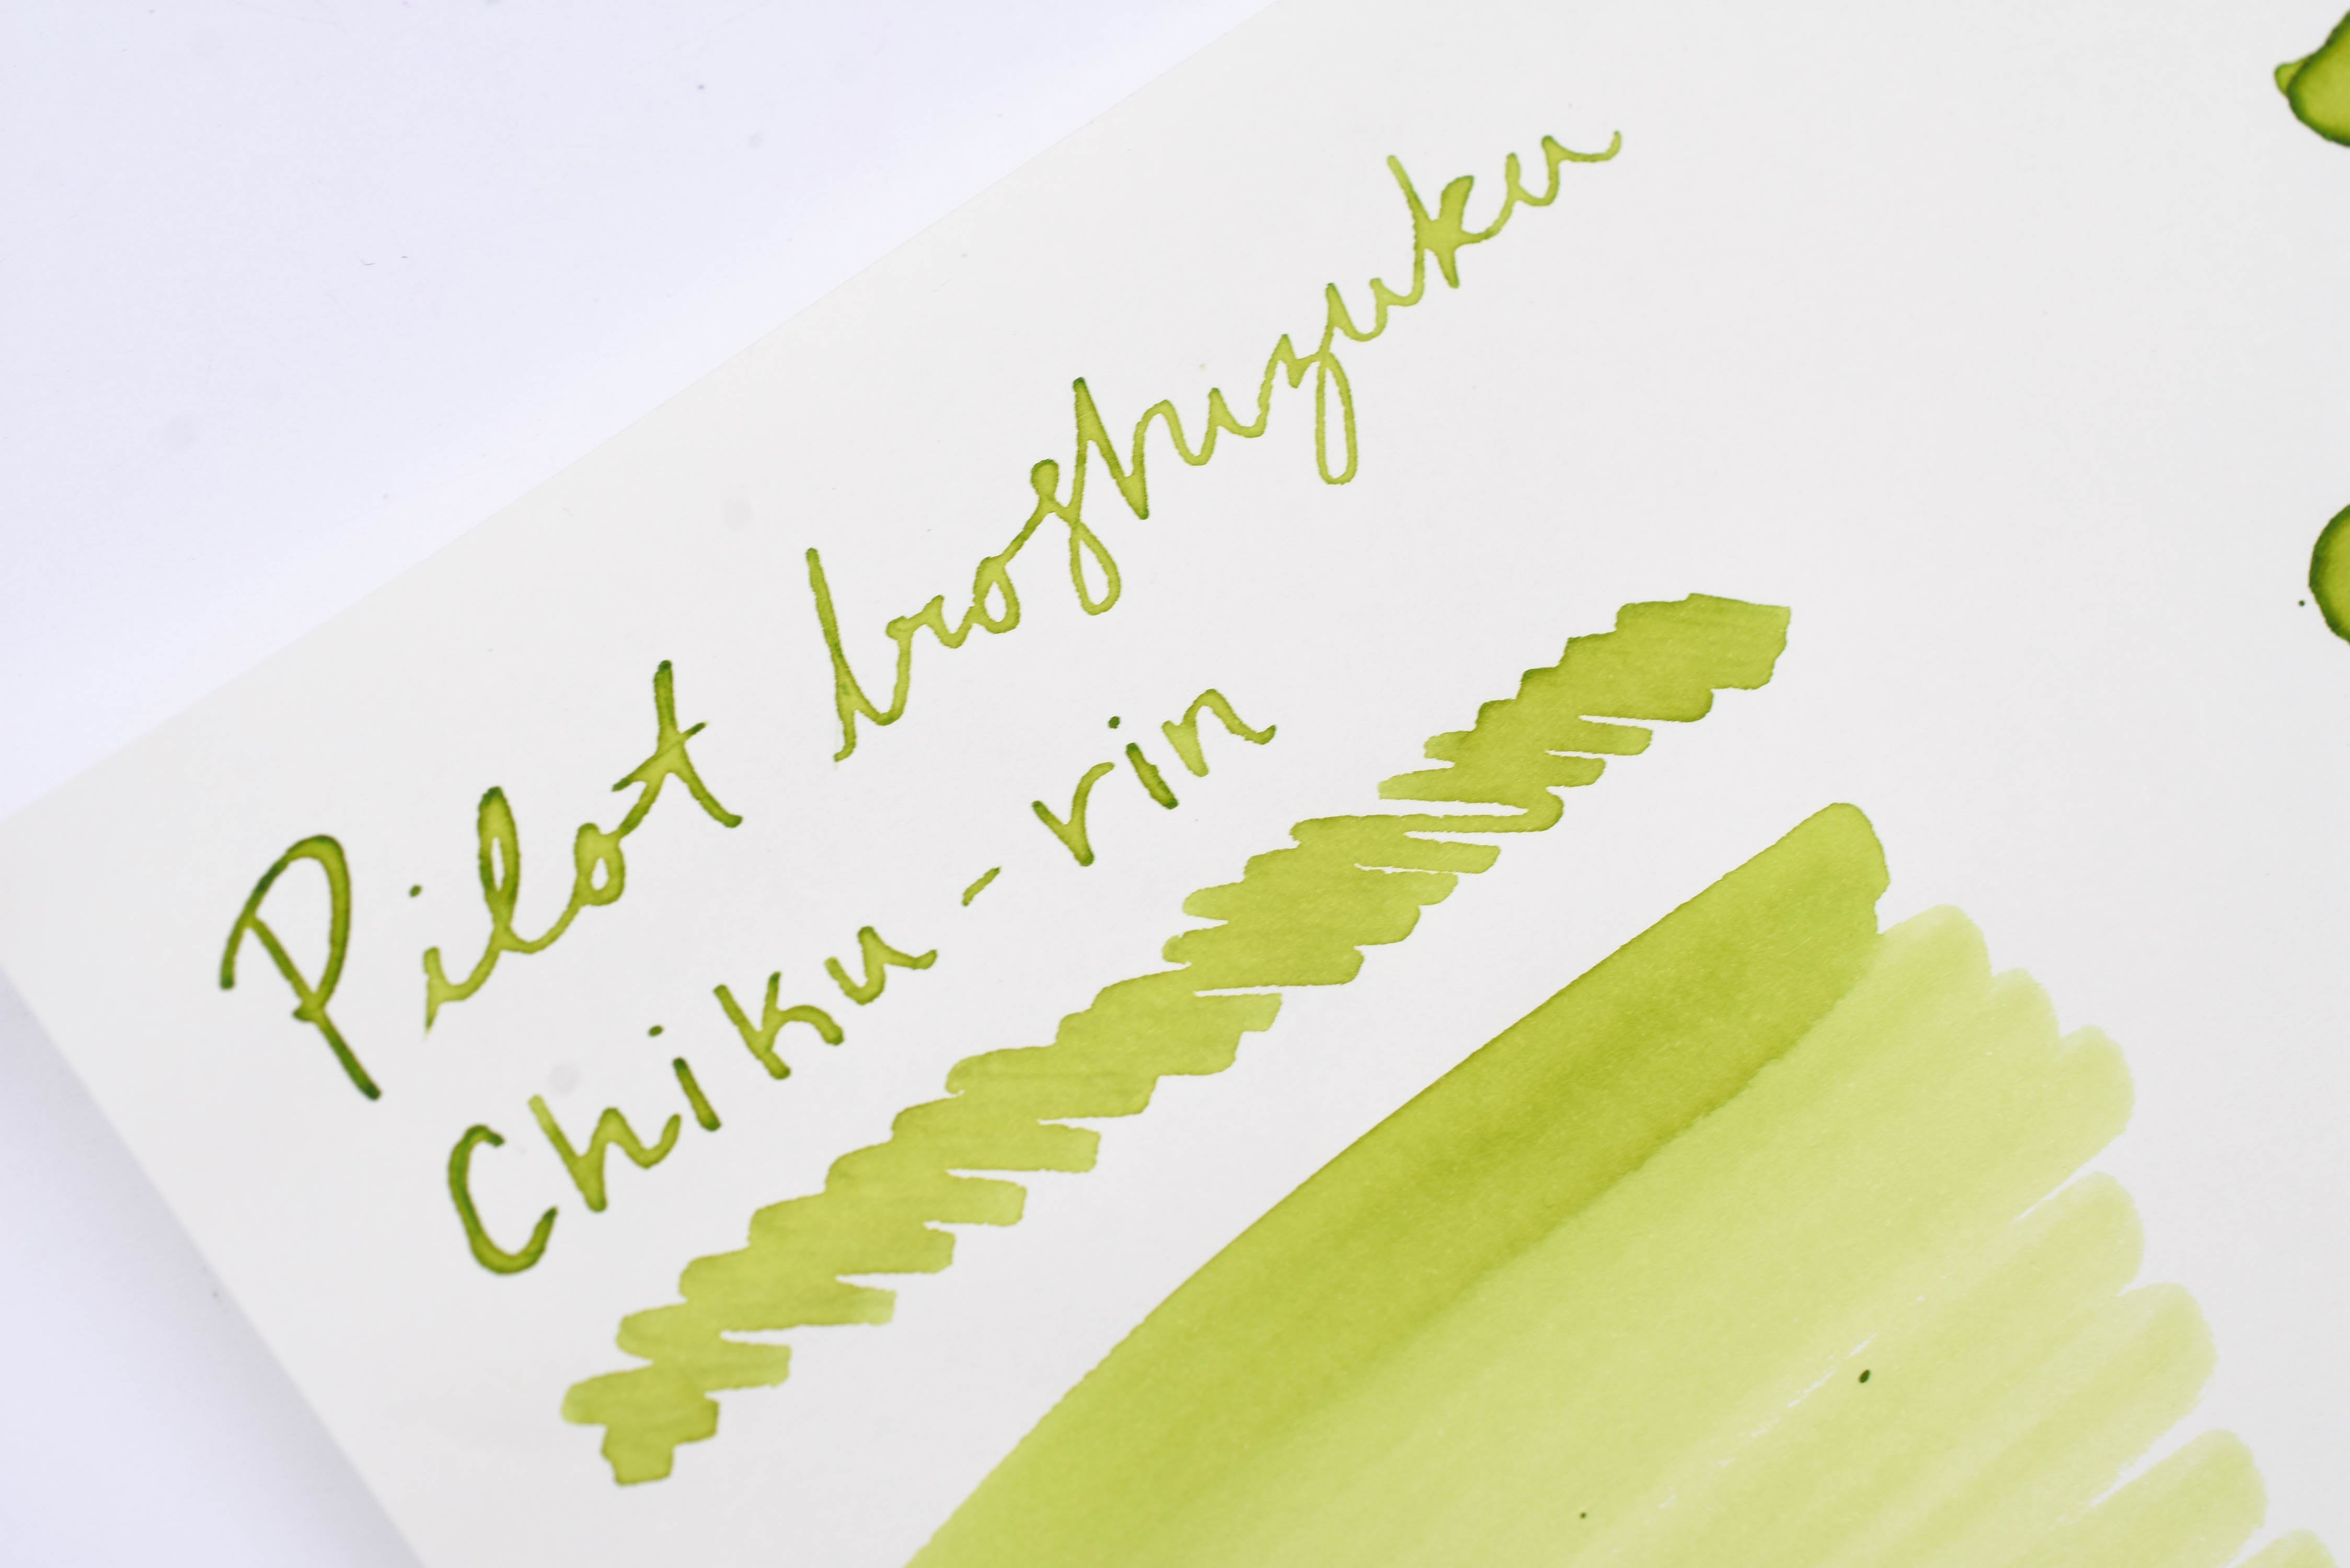 Pilot Iroshizuku
Chiku-rin